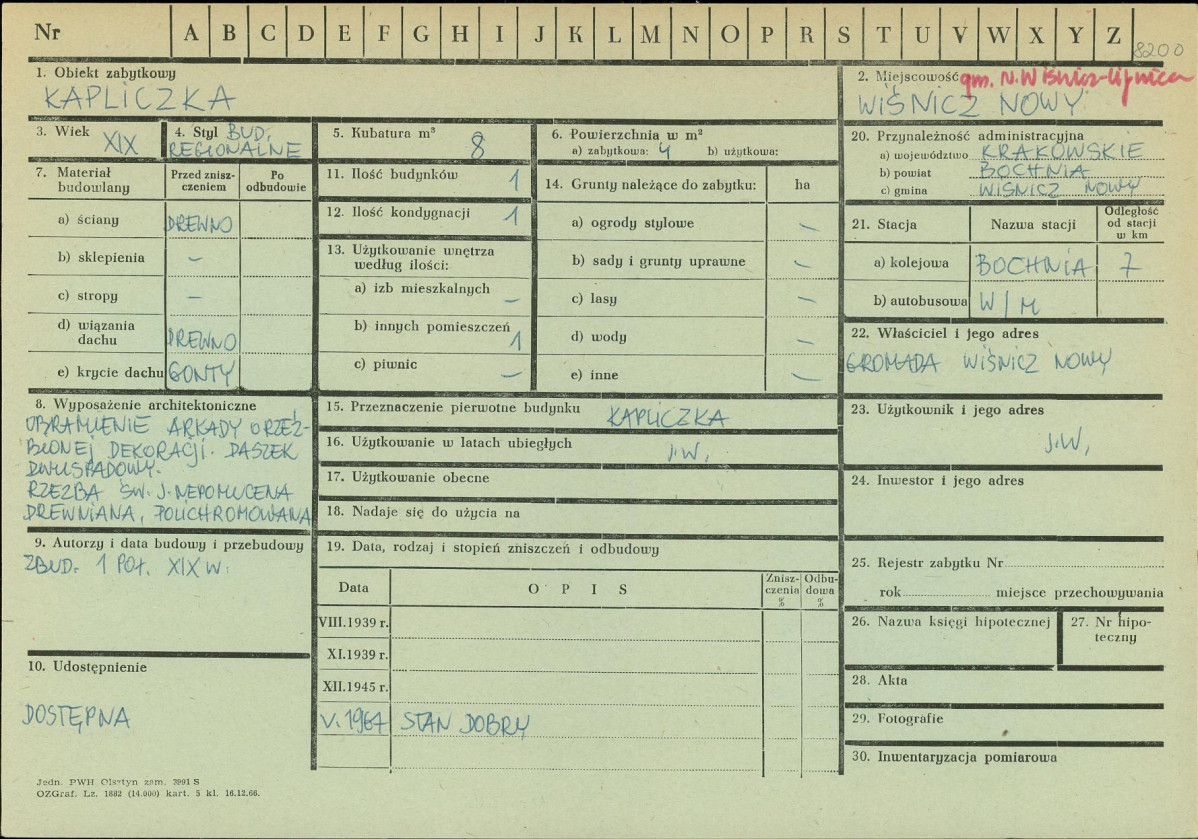 Nr A B C D E F G H I J K L M N O P R S T U V W X Y Z 8200
1. Obiekt zabytkowy
KAPLICZKA
2. Miejscowość gm. N. Wiśnicz-Lipnica
WIŚNICZ NOWY
3. Wiek XIX
4. Styl BUD.
REGIONALNE
5. Kubatura m³ 8
6. Powierzchnia w m²
a) zabytkowa: 4 b) użytkowa:
7. Materiał budowlany
Przed znisz-
czeniem
Po
odbudowie
a) ściany DREWNO
b) sklepienia –
c) stropy –
d) wiązania
dachu DREWNO
e) krycie dachu GONTY
8. Wyposażenie architektoniczne
OBRAMIENIE ARKADY O RZEŹ-
BIONEJ DEKORACJI. DASZEK
DWUSPADOWY.
RZEŹBA ŚW. J. NEPOMUCENA
DREWNIANA, POLICHROMOWANA
9. Autorzy i data budowy i przebudowy
ZBUD. 1 POŁ. XIX W.
10. Udostępnienie
DOSTĘPNA
11. Ilość budynków 1
12. Ilość kondygnacji 1
13. Użytkowanie wnętrza
według ilości:
a) izb mieszkalnych –
b) innych pomieszczeń 1
c) piwnic –
14. Grunty należące do zabytku: ha
a) ogrody stylowe –
b) sady i grunty uprawne –
c) lasy –
d) wody –
e) inne –
15. Przeznaczenie pierwotne budynku KAPLICZKA
16. Użytkowanie w latach ubiegłych J.W,
17. Użytkowanie obecne
18. Nadaje się do użycia na
19. Data, rodzaj i stopień zniszczeń i odbudowy
Data O P I S
Znisz-
czenia
%
Odbu-
dowa
%
VIII.1939 r.
XI.1939 r.
XII.1945 r.
V. 1967 STAN DOBRY
20. Przynależność administracyjna
a) województwo KRAKOWSKIE
b) powiat BOCHNIA
c) gmina WIŚNICZ NOWY
21. Stacja Nazwa stacji
Odległość
od stacji
w km
a) kolejowa BOCHNIA 7
b) autobusowa W/M
22. Właściciel i jego adres
GROMADA WIŚNICZ NOWY
23. Użytkownik i jego adres
J.W,
24. Inwestor i jego adres
25. Rejestr zabytku Nr
rok miejsce przechowywania
26. Nazwa księgi hipotecznej
27. Nr hipo-
teczny
28. Akta
29. Fotografie
30. Inwentaryzacja pomiarowa
Jedn. PWH Olsztyn zam. 3991 S
OZGraf. Lz. 1882 (14.000) kart. 5 kl. 16.12.66.